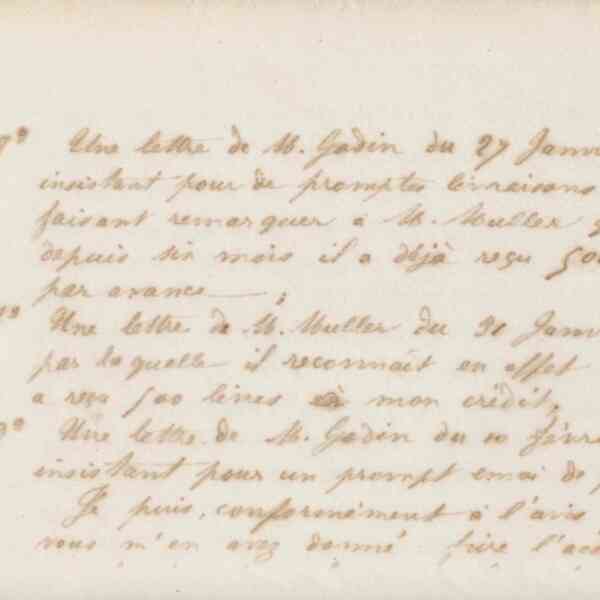 Une lettre de M. Godin du 27 Janvi
insistant pour de promptes livraisons
faisant remarquer à M. Muller
depuis six mois il a déjà reçu 500
par avance ;
Une lettre de M. Muller du 31 Janvi
par laquelle il reconnaît en effet
a reçu 500 livres à mon crédit,
Une lettre de M. Godin du 10 févri
insistant pour un prompt envoi de
Je puis, conformément à l'avis
vous m'en avez donné faire l'ac